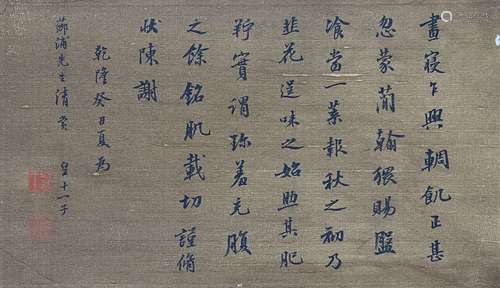 晝寢乍興輖飢正甚
忽蒙蕳翰猥賜盤
飧當一葉報秋之初乃
韭花逞味之始助其肥
羜實謂珍羞充腹
之餘銘肌載切謹脩
狀陳謝
乾隆癸丑夏為
莭浦先生清賞
皇十一子